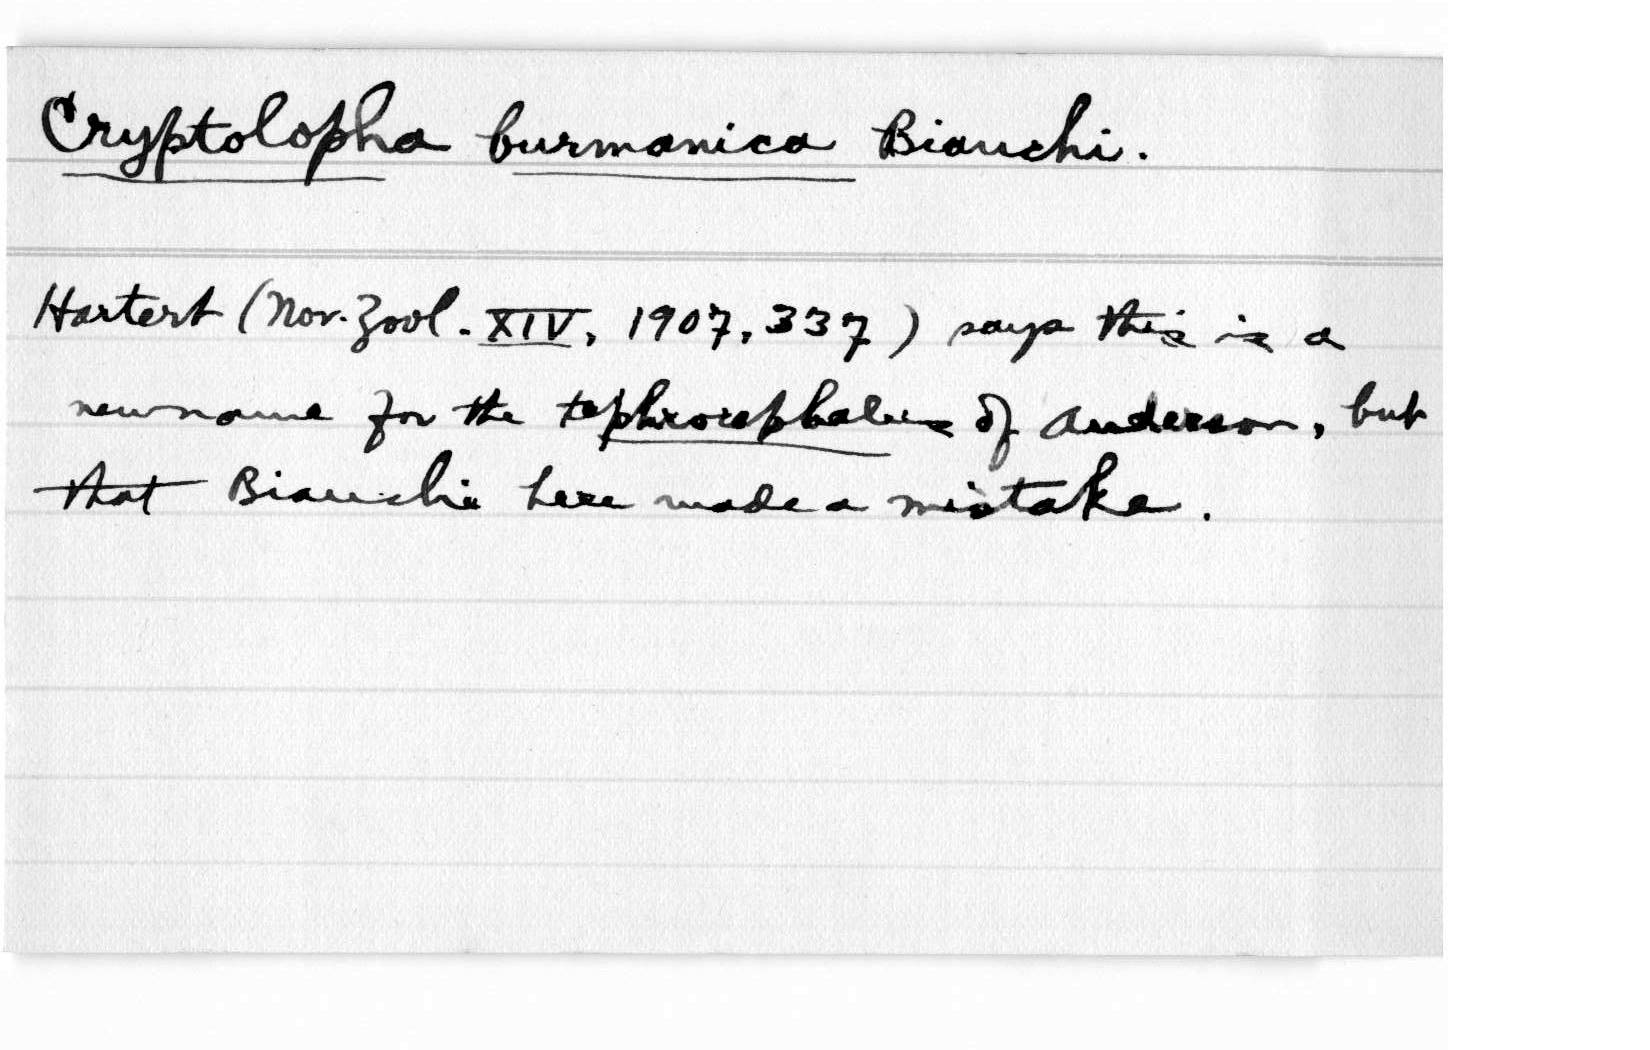 Cryptolopha burmanica Bianchi.
Hartert (Nov. Zool. XIV, 1907, 337) says this is a
new name for the tephrocephalus of Anderson, but
that Bianchi here made a mistake.